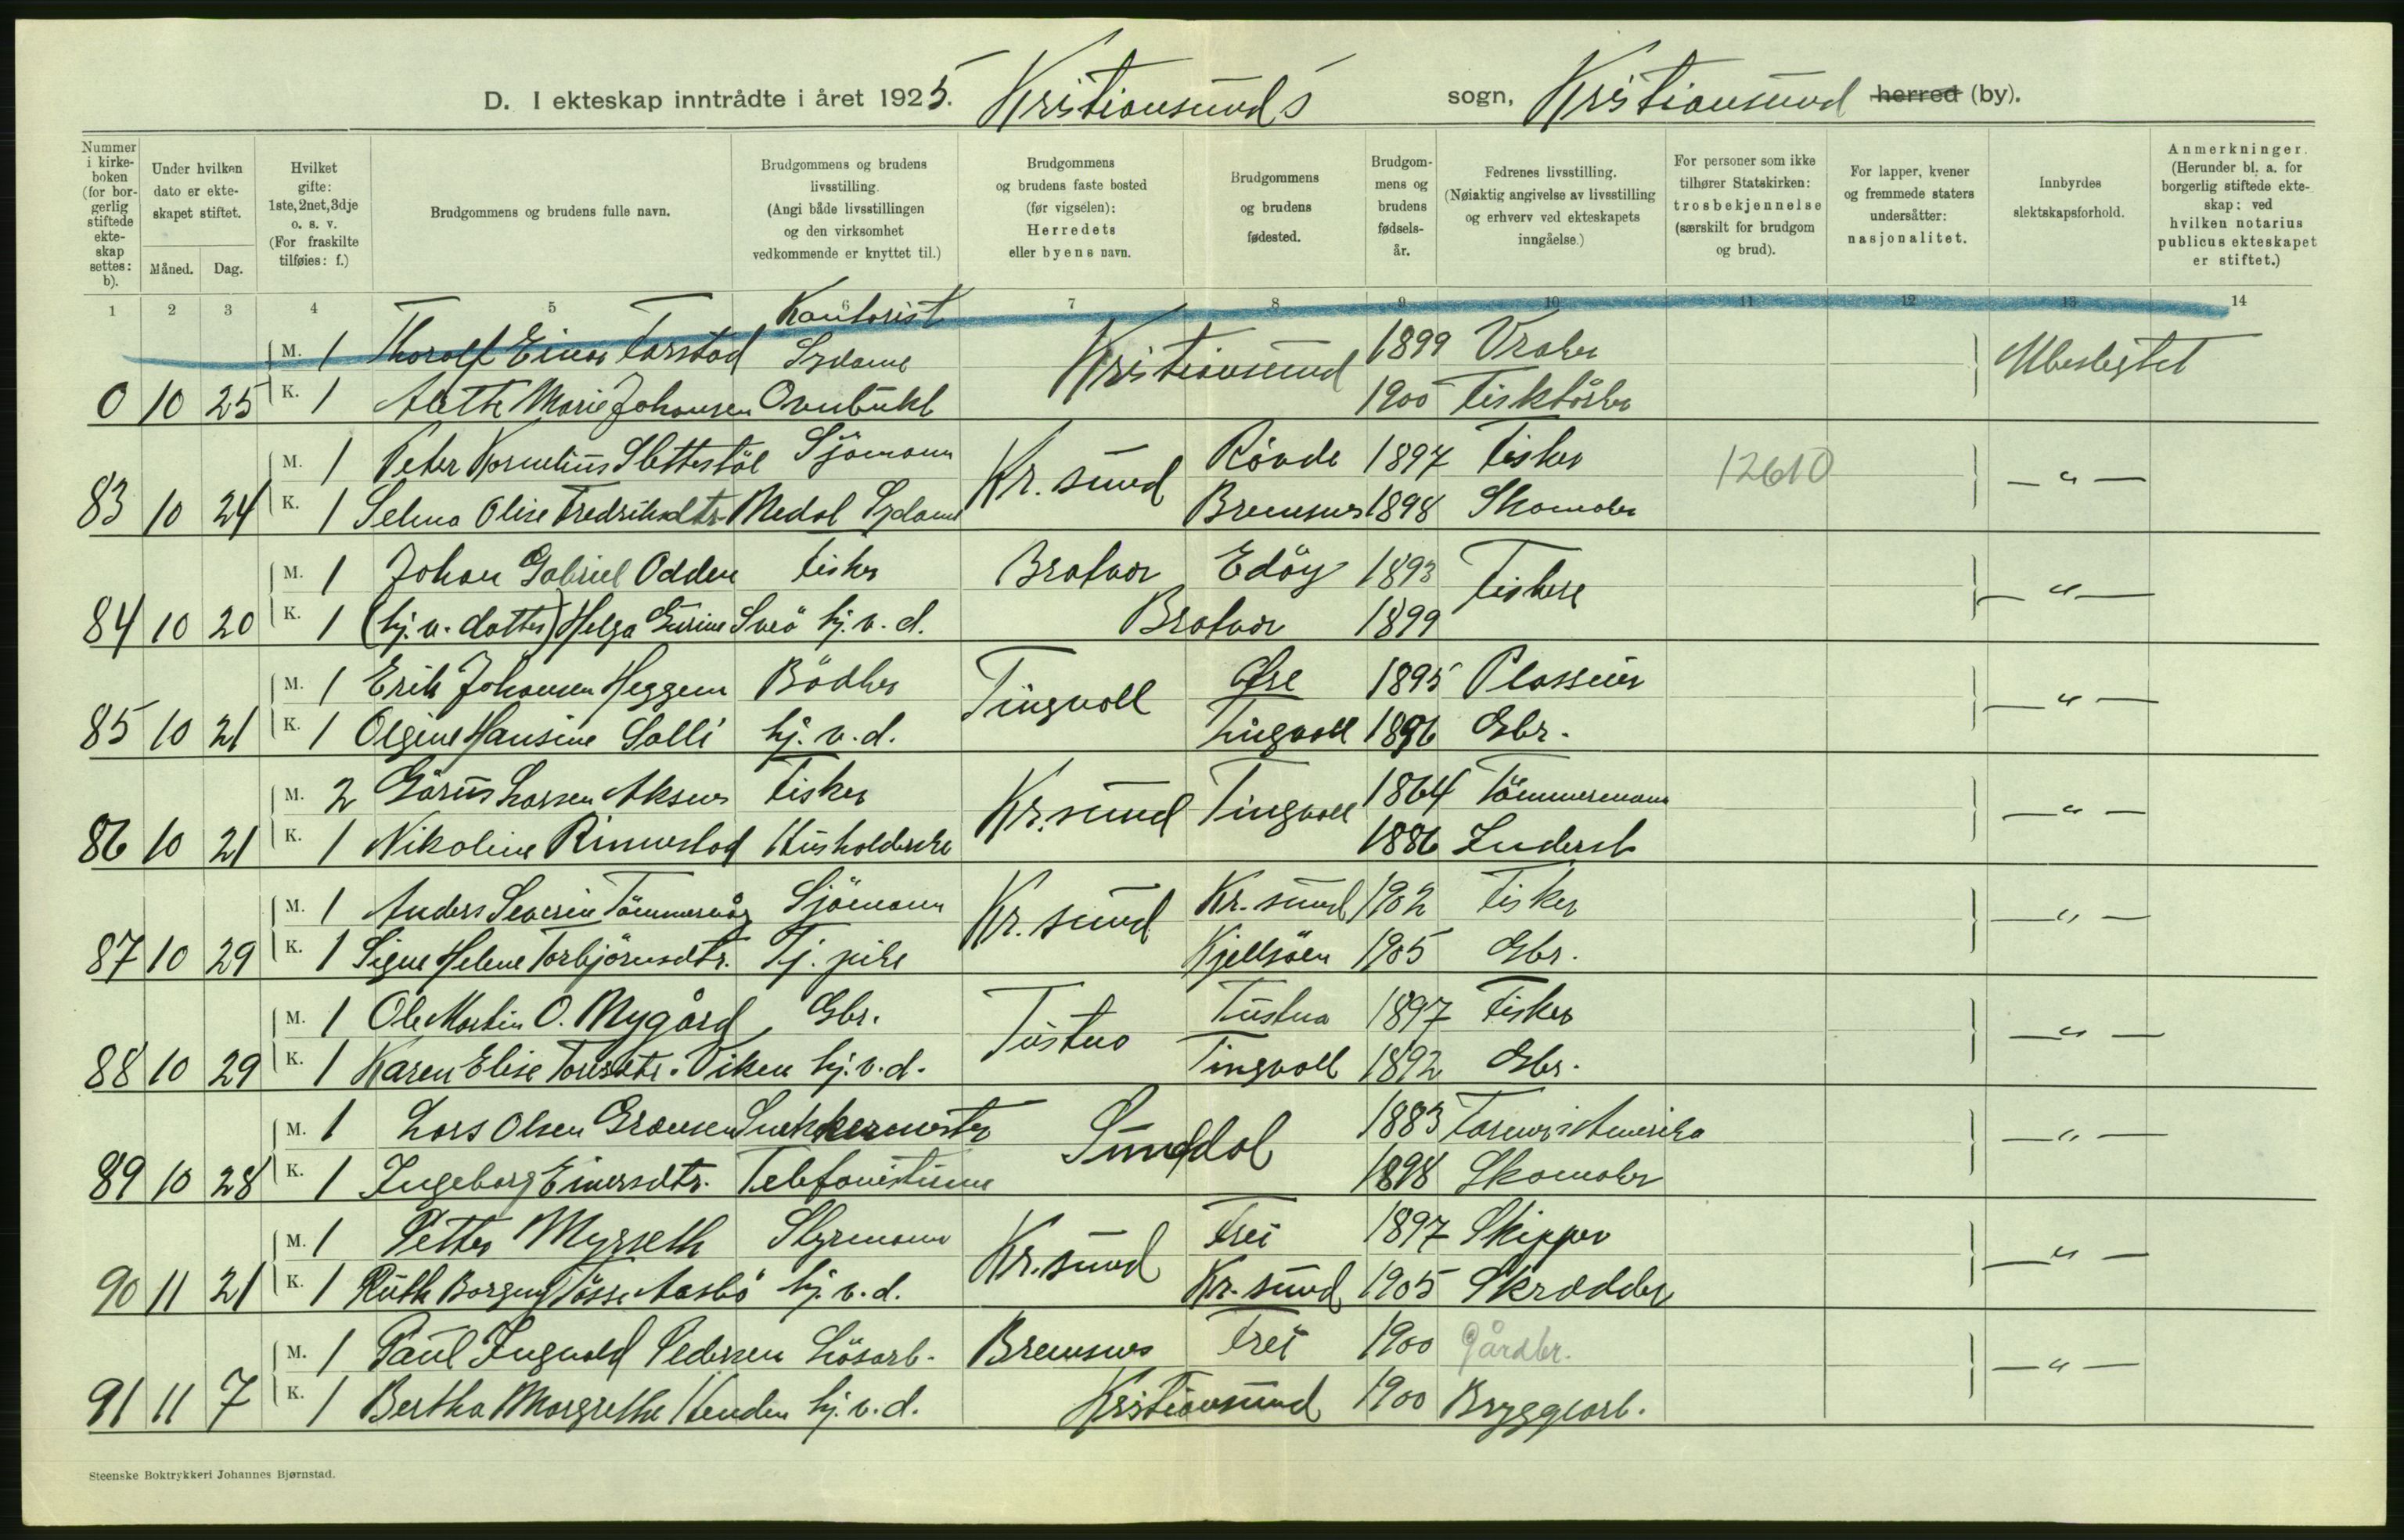 D. I ekteskap inntrådte i året 1925. Kristiansunds sogn, Kristiansund herred (by).
Nummer i kirkeboken (for borgerlig stiftede ekteskap settes: b).
Under hvilken dato er ekteskapet stiftet.
Måned. Dag.
Hvilket gifte: 1ste, 2net, 3dje o. s. v. (For fraskilte tilføies: f.)
Brudgommens og brudens fulle navn.
Brudgommens og brudens livsstilling. (Angi både livsstillingen og den virksomhet vedkommende er knyttet til.)
Brudgommens og brudens faste bosted (før vigselen): Herredets eller byens navn.
Brudgommens og brudens fødested.
Brudgommens og brudens fødselsår.
Fedrenes livsstilling. (Nøiaktig angivelse av livsstilling og erhverv ved ekteskapets inngåelse.)
For personer som ikke tilhører Statskirken: trosbekjennelse (særskilt for brudgom og brud).
For lapper, kvener og fremmede staters undersåtter: nasjonalitet.
Innbyrdes slektskapsforhold.
Anmerkninger. (Herunder bl. a. for borgerlig stiftede ekteskap: ved hvilken notarius publicus ekteskapet er stiftet.)
1 2 3 4 5 6 7 8 9 10 11 12 13 14
M. 1 Thorolf Einar Farstad Kontorist Kristiansund 1899 Ubeslegtet
0 10 25 K. 1 Marie Johansen 1900
M. 1 Peter Kornelius Slettestöl Sjömann Kr. sund 1897 Fisker 12610
83 10 24 K. 1 Selma Olise Fredriksdtr. Medal Sydame Bremsnes 1898 Skomaker — " —
M. 1 Johan Gabriel Odden Fisker Bratvær Edöy 1893 Fiskere
84 10 20 K. 1 (hj. v. datter) Helga Sveö hj. v. d. Bratvær 1899 — " —
M. 1 Erik Johansen Heggem Bödker Tingvoll Øre 1895
85 10 21 K. 1 Olgine Hansine Solli hj. v. d. Tingvoll 1896 Gbr. — " —
M. 2 Larsen Aksnes Fisker Kr. sund Tingvoll 1864 Tömmermann
86 10 21 K. 1 Nikoline Rimmestad Husholderske 1886 — " —
M. 1 Anders Severin Tömmervåg Sjömann Kr. sund Kr. sund 1902 Fisker
87 10 29 K. 1 Signe Helene Torbjörnsdtr. Tj. pike 1905 Gbr. — " —
M. 1 Ole Martin O. Nygård Gbr. Tustna Tustna 1897 Fisker
88 10 29 K. 1 Karen Elise Viken hj. v. d. Tingvoll 1892 Gbr. — " —
M. 1 Lars Olsen Snekkermester Sunddal 1883 Farmer i Amerika
89 10 28 K. 1 Ingeborg Einersdtr. Telefonistinne 1898 Skomaker — " —
M. 1 Petter Myrseth Styrmann Kr. sund Frei 1897 Skipper
90 11 21 K. 1 Ruth Aasbö hj. v. d. Kr. sund 1905 Skrædder — " —
M. 1 Paul Ingvald Pedersen Lösarb. Bremsnes Frei 1900 Gårdbr.
91 11 7 K. 1 Bertha Margrethe Henden hj. v. d. Kristiansund 1900 Bryggearb. — " —
Steenske Boktrykkeri Johannes Bjørnstad.